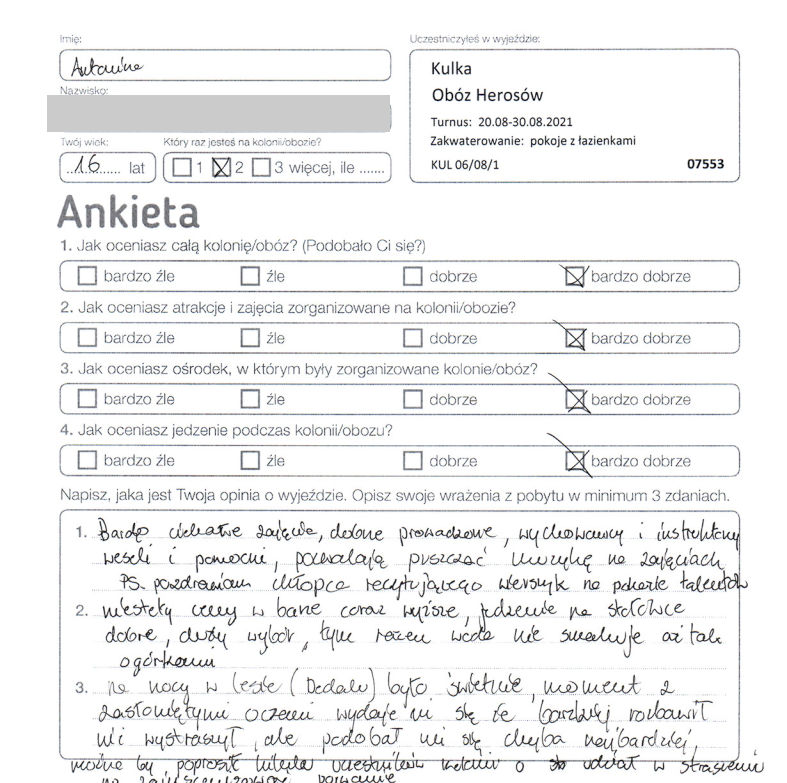 Imię:
Antonina
Nazwisko:
Twój wiek:
16 lat
Który raz jesteś na kolonii/obozie?
1 2 3 więcej, ile .......
Uczestniczyłeś w wyjeździe:
Kulka
Obóz Herosów
Turnus: 20.08-30.08.2021
Zakwaterowanie: pokoje z łazienkami
KUL 06/08/1 07553
Ankieta
1. Jak oceniasz całą kolonię/obóz? (Podobało Ci się?)
bardzo źle źle dobrze bardzo dobrze
2. Jak oceniasz atrakcje i zajęcia zorganizowane na kolonii/obozie?
bardzo źle źle dobrze bardzo dobrze
3. Jak oceniasz ośrodek, w którym były zorganizowane kolonie/obóz?
bardzo źle źle dobrze bardzo dobrze
4. Jak oceniasz jedzenie podczas kolonii/obozu?
bardzo źle źle dobrze bardzo dobrze
Napisz, jaka jest Twoja opinia o wyjeździe. Opisz swoje wrażenia z pobytu w minimum 3 zdaniach.
1. Bardzo ciekawe zajęcia, dobrze prowadzone, wychowawcy i instruktorzy
weseli i pomocni, pozwalają puszczać muzykę na zajęciach
PS. pozdrawiam chłopca recytującego wierszyk na pokazie talentów
2. niestety ceny w barze coraz wyższe, jedzenie na stołówce
dobre, duży wybór, tym razem woda nie smakuje aż tak
ogórkami
3. na nocy w lesie (Dedalu) było świetnie, moment z
zasłoniętymi oczami wydaje mi się że bardziej rozbawił
niż wystraszył, ale podobał mi się chyba najbardziej,
można by poprosić kilku uczestników kolonii o udział w straszeniu
na